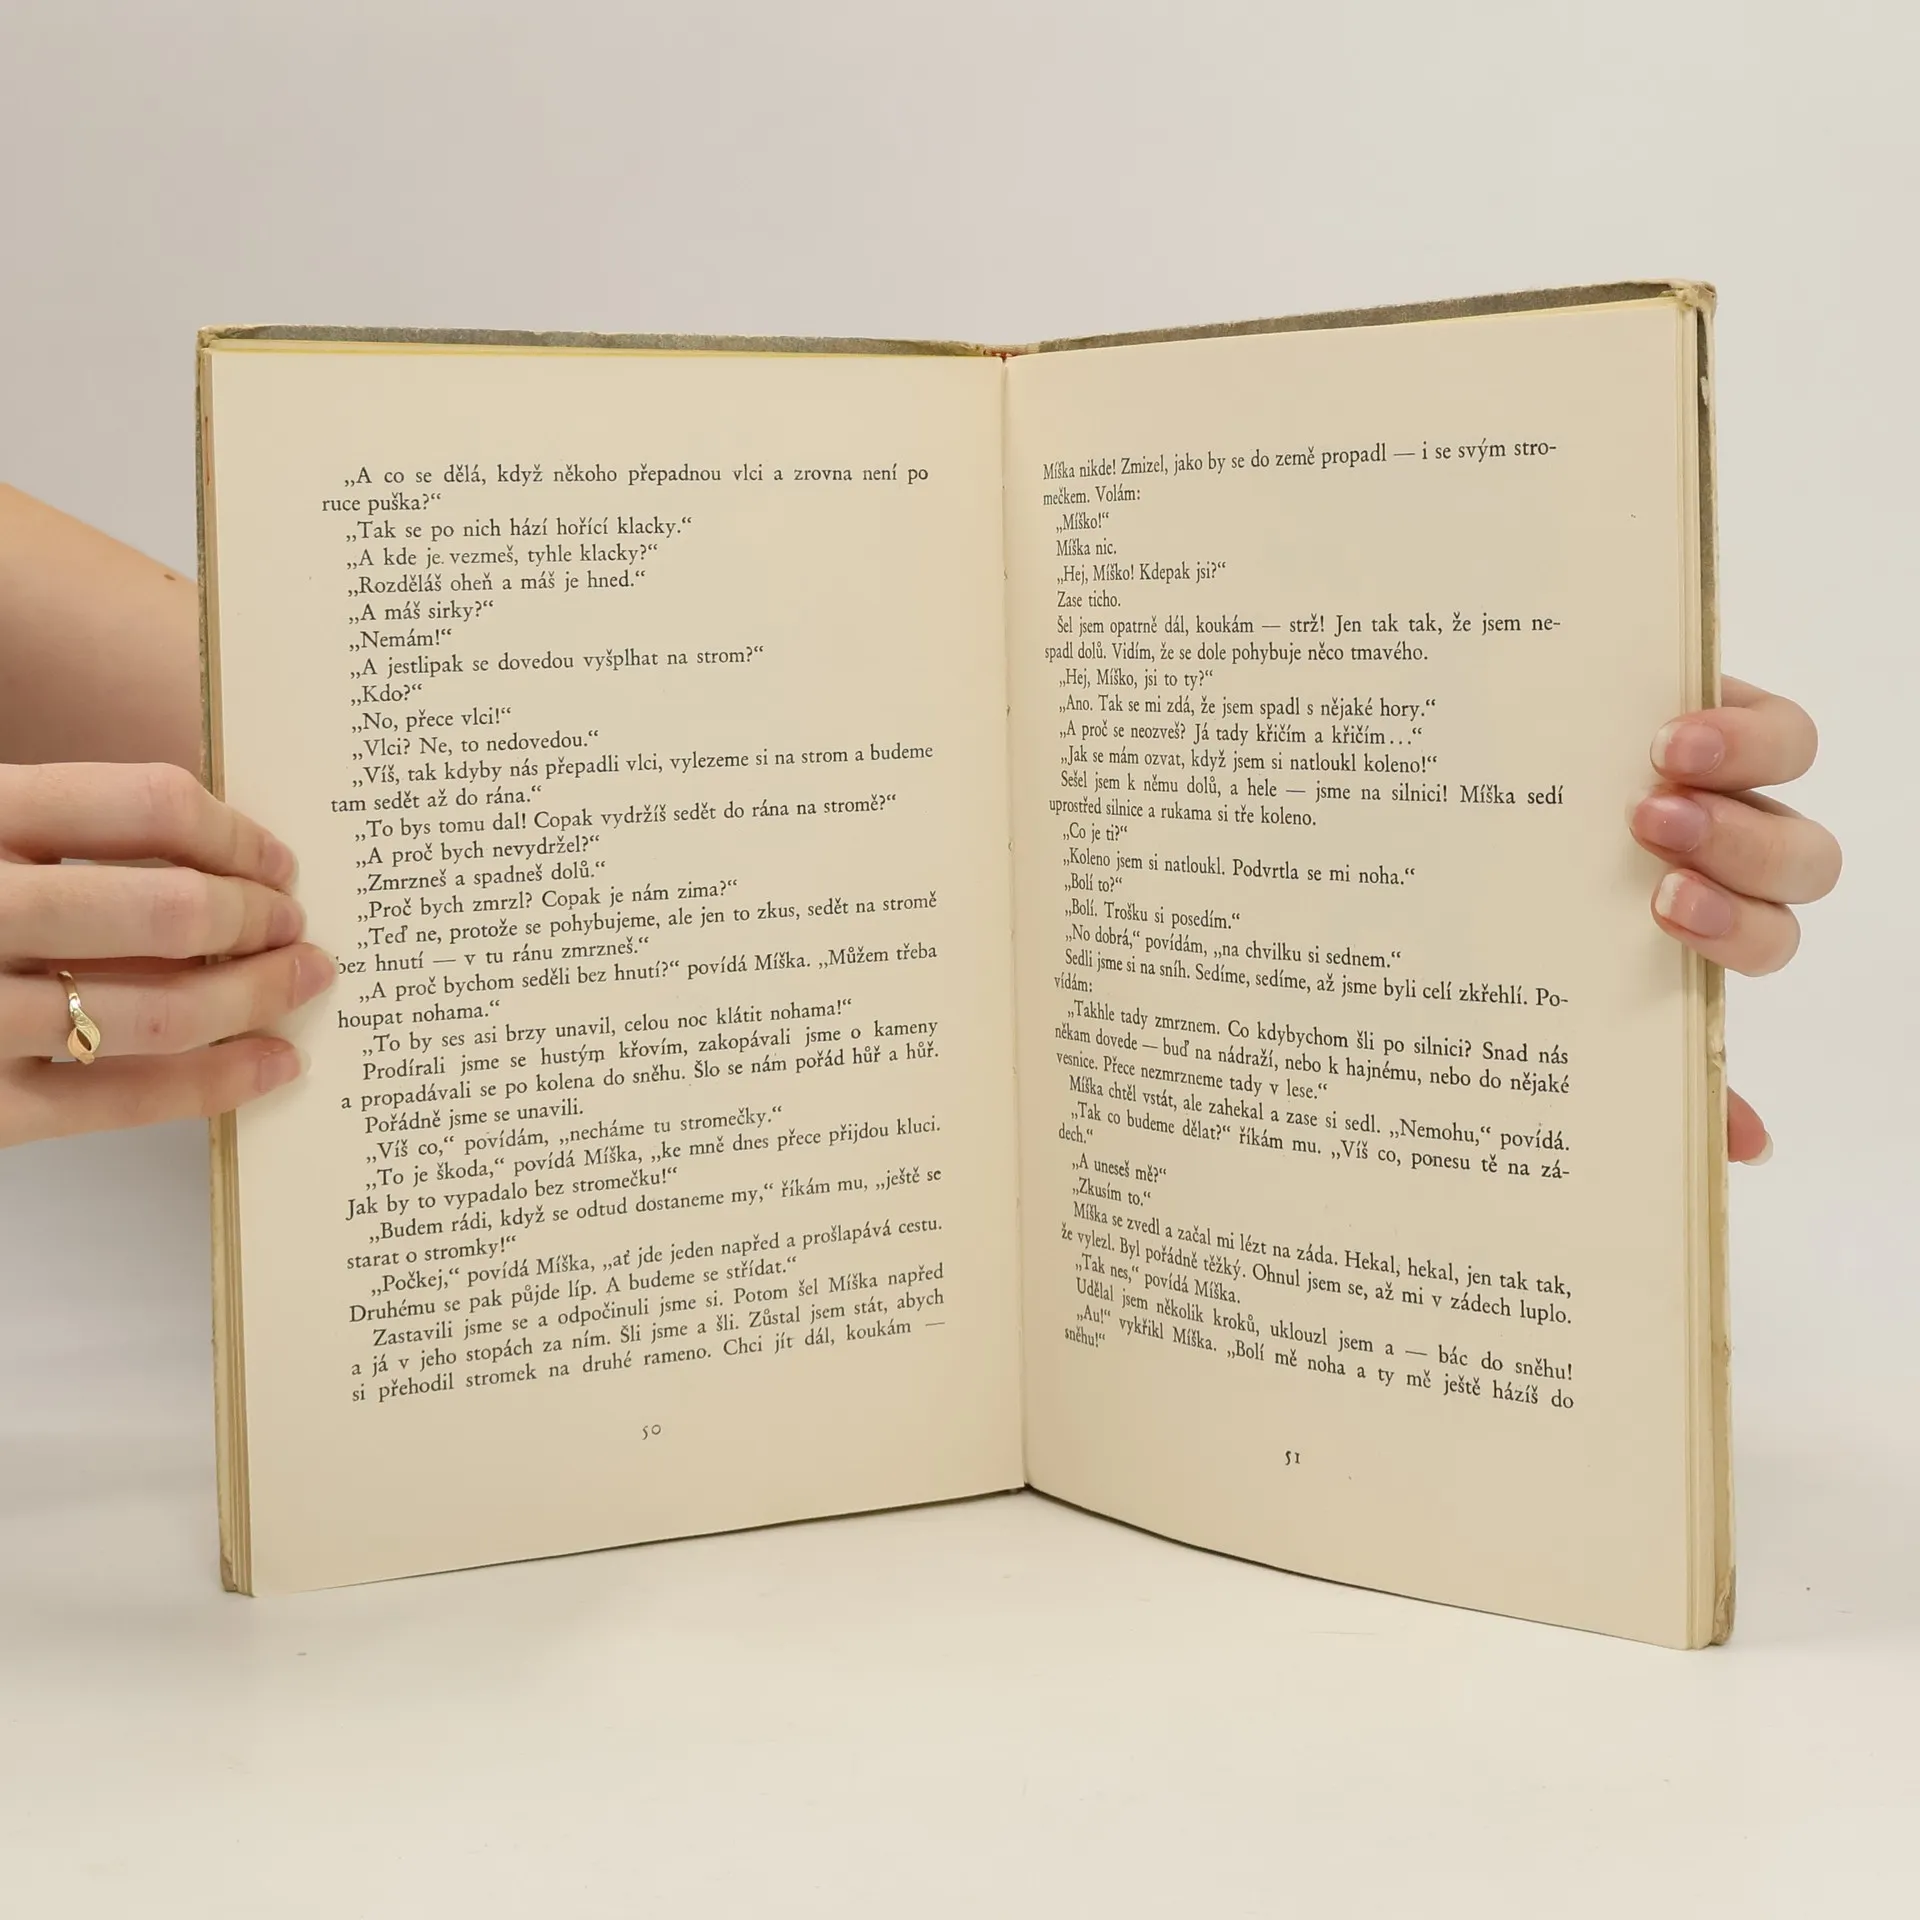 „A co se dělá, když někoho přepadnou vlci a zrovna není po
ruce puška?“
„Tak se po nich hází hořící klacky.“
„A kde je vezmeš, tyhle klacky?“
„Rozděláš oheň a máš je hned.“
„A máš sirky?“
„Nemám!“
„A jestlipak se dovedou vyšplhat na strom?“
„Kdo?“
„No, přece vlci!“
„Vlci? Ne, to nedovedou.“
„Víš, tak kdyby nás přepadli vlci, vylezeme si na strom a budeme
tam sedět až do rána.“
„To bys tomu dal! Copak vydržíš sedět do rána na stromě?“
„A proč bych nevydržel?“
„Zmrzneš a spadneš dolů.“
„Proč bych zmrzl? Copak je nám zima?“
„Teď ne, protože se pohybujeme, ale jen to zkus, sedět na stromě
bez hnutí — v tu ránu zmrzneš.“
„A proč bychom seděli bez hnutí?“ povídá Míška. „Můžem třeba
houpat nohama.“
„To by ses asi brzy unavil, celou noc klátit nohama!“
Prodírali jsme se hustým křovím, zakopávali jsme o kameny
a propadávali se po kolena do sněhu. Šlo se nám pořád hůř a hůř.
Pořádně jsme se unavili.
„Víš co,“ povídám, „necháme tu stromečky.“
„To je škoda,“ povídá Míška, „ke mně dnes přece přijdou kluci.
Jak by to vypadalo bez stromečku!“
„Budem rádi, když se odtud dostaneme my,“ říkám mu, „ještě se
starat o stromky!“
„Počkej,“ povídá Míška, „ať jde jeden napřed a prošlapává cestu.
Druhému se pak půjde líp. A budeme se střídat.“
Zastavili jsme se a odpočinuli jsme si. Potom šel Míška napřed
a já v jeho stopách za ním. Šli jsme a šli. Zůstal jsem stát, abych
si přehodil stromek na druhé rameno. Chci jít dál, koukám —
50
Míška nikde! Zmizel, jako by se do země propadl — i se svým stro-
mečkem. Volám:
„Míško!“
Míška nic.
„Hej, Míško! Kdepak jsi?“
Zase ticho.
Šel jsem opatrně dál, koukám — strž! Jen tak tak, že jsem ne-
spadl dolů. Vidím, že se dole pohybuje něco tmavého.
„Hej, Míško, jsi to ty?“
„Ano. Tak se mi zdá, že jsem spadl s nějaké hory.“
„A proč se neozveš? Já tady křičím a křičím...“
„Jak se mám ozvat, když jsem si natloukl koleno!“
Sešel jsem k němu dolů, a hele — jsme na silnici! Míška sedí
uprostřed silnice a rukama si tře koleno.
„Co je ti?“
„Koleno jsem si natloukl. Podvrtla se mi noha.“
„Bolí to?“
„Bolí. Trošku si posedím.“
„No dobrá,“ povídám, „na chvilku si sednem.“
Sedli jsme si na sníh. Sedíme, sedíme, až jsme byli celí zkřehlí. Po-
vídám:
„Takhle tady zmrznem. Co kdybychom šli po silnici? Snad nás
někam dovede — buď na nádraží, nebo k hajnému, nebo do nějaké
vesnice. Přece nezmrzneme tady v lese.“
Míška chtěl vstát, ale zahekal a zase si sedl. „Nemohu,“ povídá.
„Tak co budeme dělat?“ říkám mu. „Víš co, ponesu tě na zá-
dech.“
„A uneseš mě?“
„Zkusím to.“
Míška se zvedl a začal mi lézt na záda. Hekal, hekal, jen tak tak,
že vylezl. Byl pořádně těžký. Ohnul jsem se, až mi v zádech luplo.
„Tak nes,“ povídá Míška.
Udělal jsem několik kroků, uklouzl jsem a — bác do sněhu!
„Au!“ vykřikl Míška. „Bolí mě noha a ty mě ještě házíš do
sněhu!“
51